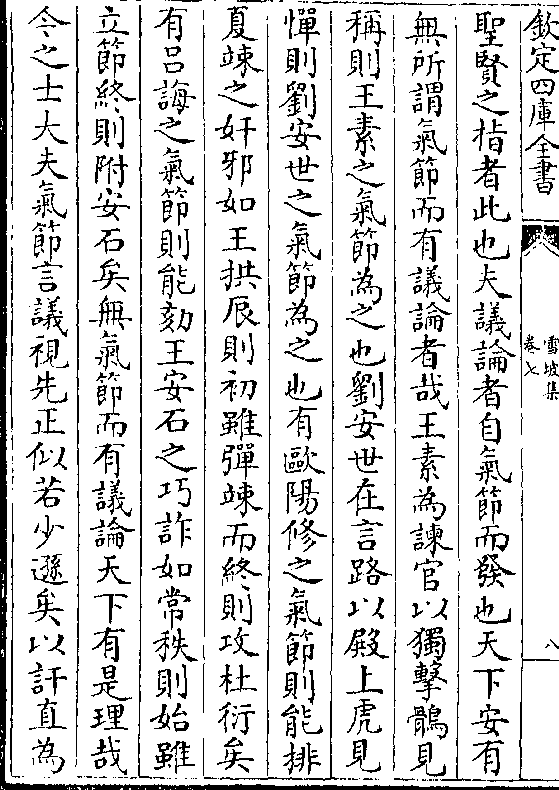 欽定四庫全書
雪坡集
卷七
八
聖賢之指者此也夫議論者自氣節而發也天下安有
無所謂氣節而有議論者哉王素為諫官以獨擊鶻見
稱則王素之氣節為之也劉安世在言路以殿上虎見
憚則劉安世之氣節為之也有歐陽修之氣節則能排
夏竦之奸邪如王拱辰則初雖彈竦而終則攻杜衍矣
有呂誨之氣節則能劾王安石之巧詐如常秩則始雖
立節終則附安石矣無氣節而有議論天下有是理哉
今之士大夫氣節言議視先正似若少遜矣以訐直為